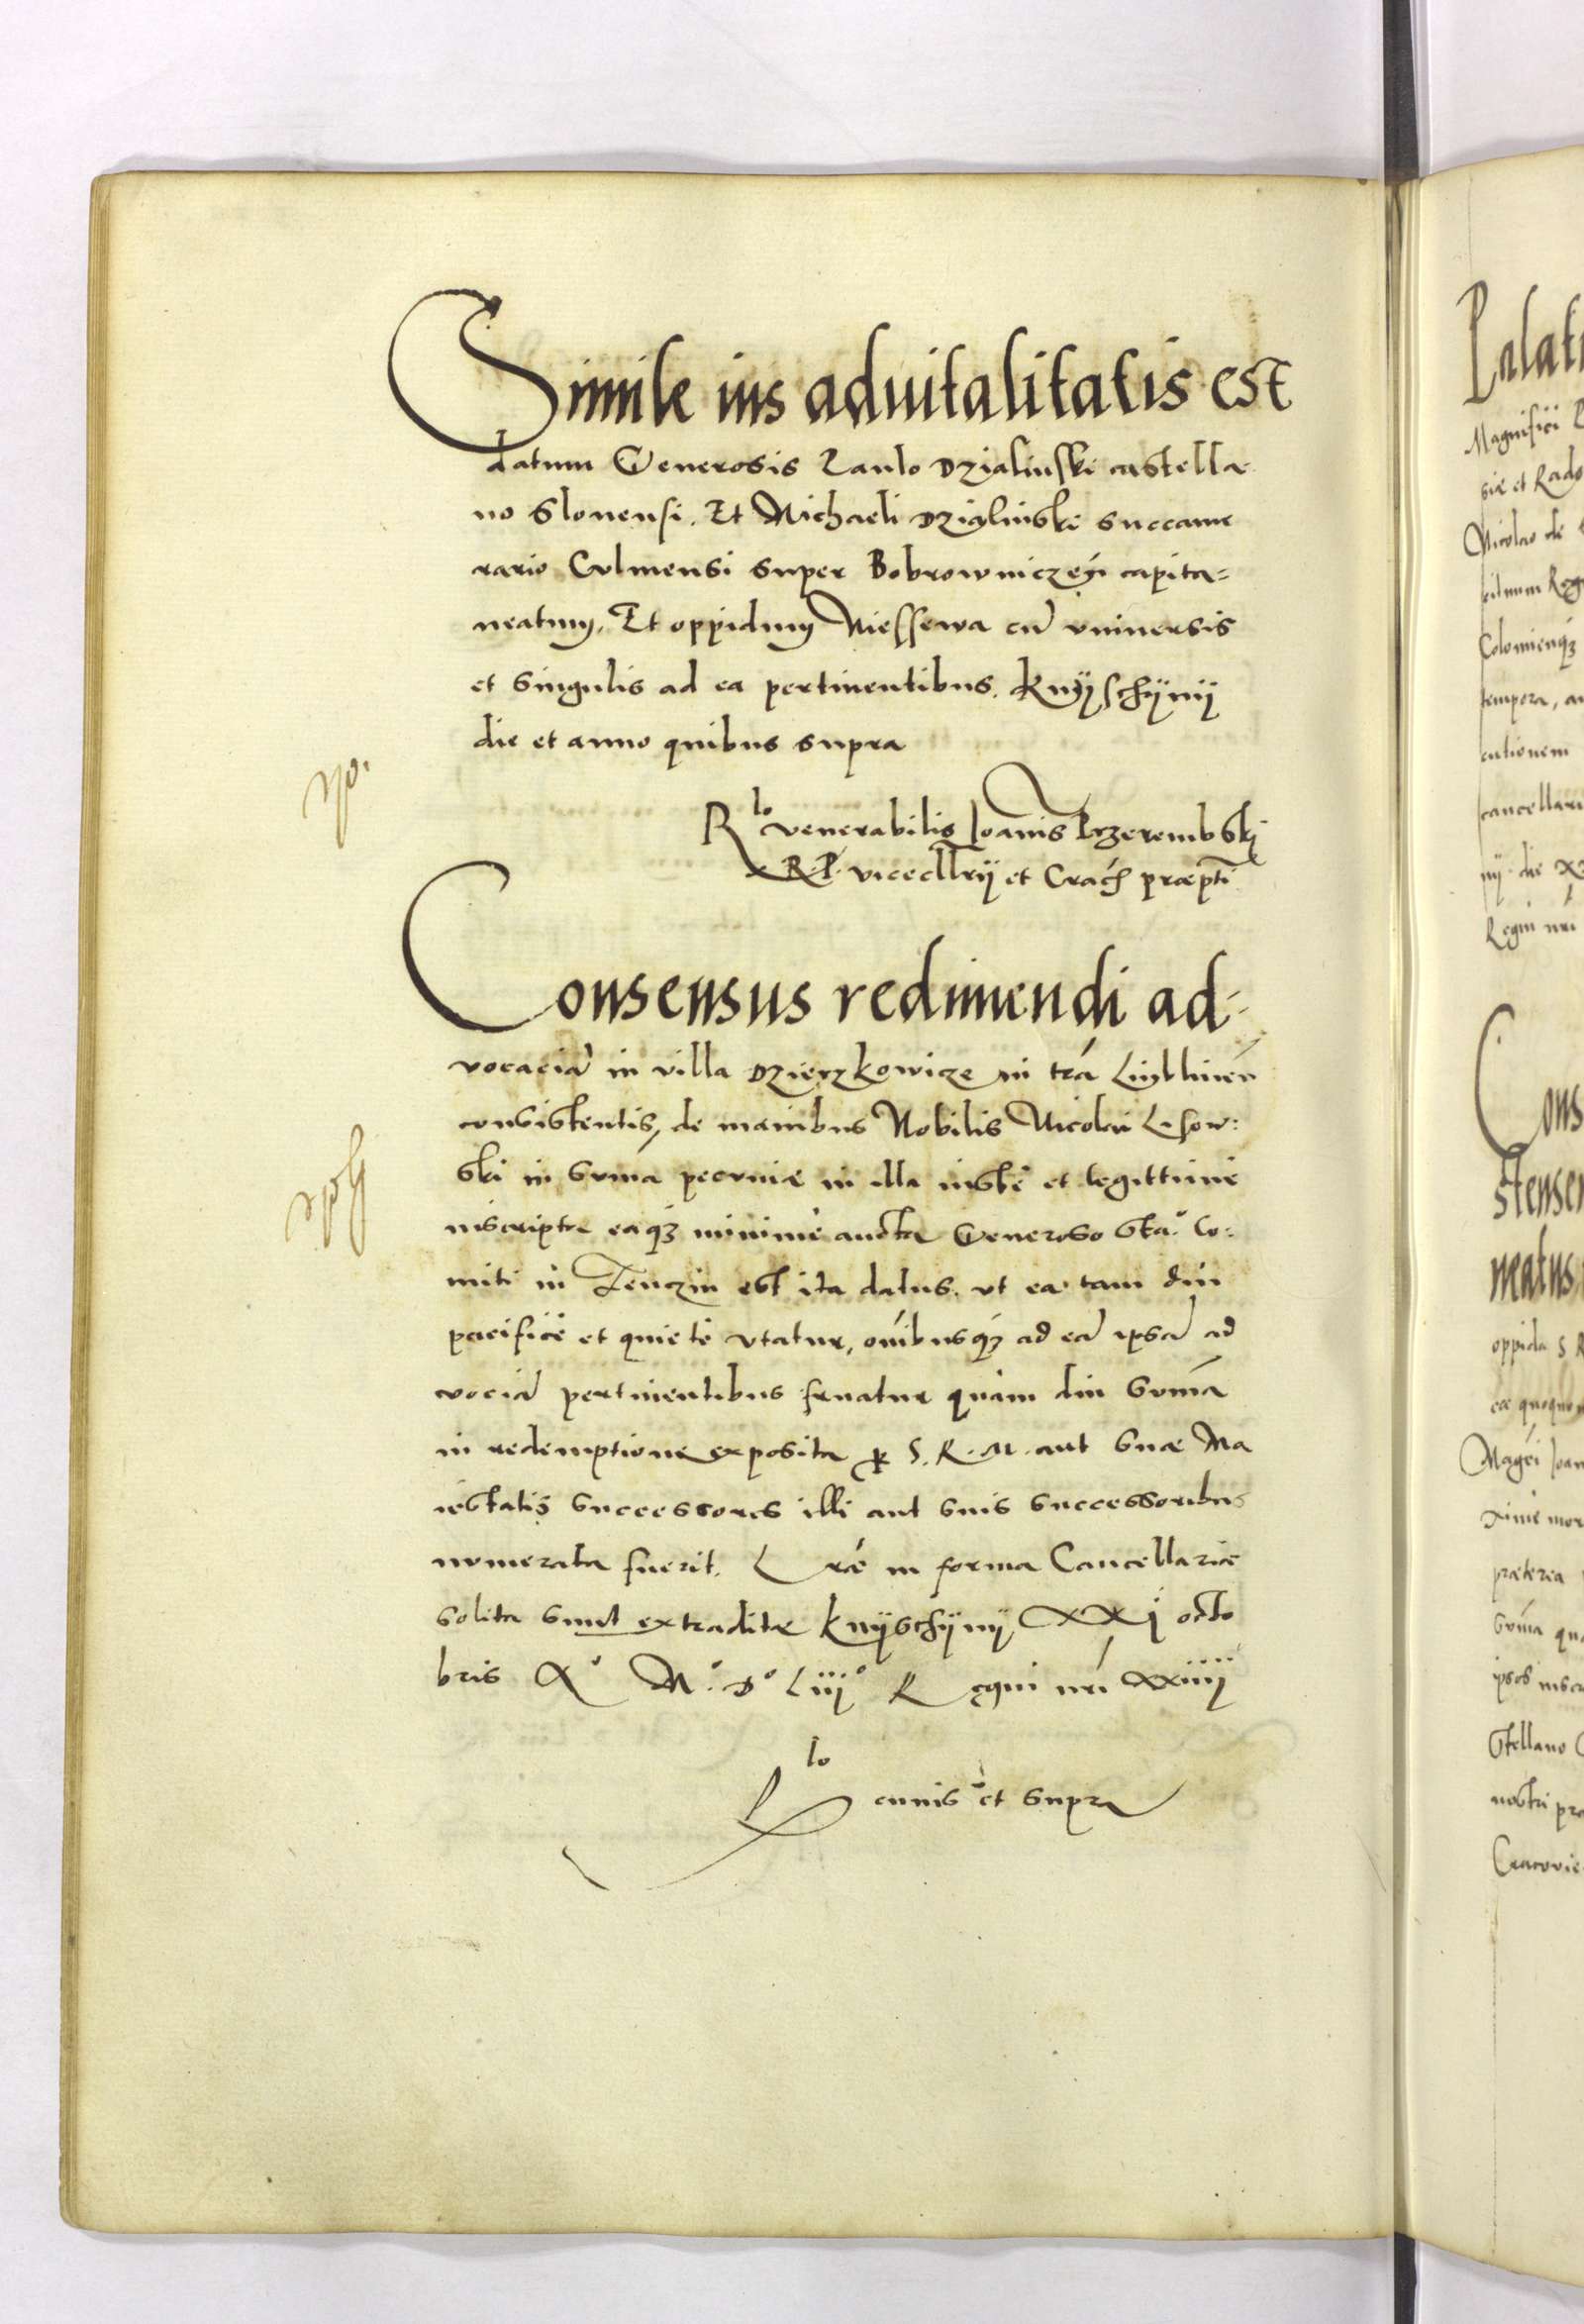 Simile ius aduitalitatis est
datum Generosis Paulo Dzialinski castella
no Slonensi. Et Michaeli Dzialinski succame
rario Culmensi super Bobrowniczeń capita=
neatum, Et oppidum Niessewa cū vniuersis
et singulis ad ea pertinentibus. Knÿschÿnÿ
die et anno quibus supra
Rlo venerabilis Ioanis Przerembski
R. P. vicecllrÿ et Crach praeptī
Consensus redimendi ad=
vocaciā in villa Dzierzkowicze in trá Lublineń
consistentis, de manibus Nobilis Nicolai Lisow:
ski in sumā pecuniae in illa iustè et legittimè
inscripta eaqꝫ minimè aucta Generoso Sta: Co:
miti in Tenczin est ita datus. vt ea tam diu
pacificè et quietè vtatur, oībusqꝫ ad eā ipsā ad
vociā pertinentibus fruatur quàm diu sumā
in redemptione exposita ꝑ S. R. M. aut suae Ma
iestatis successores illi aut suis successoribus
numerata fuerit. Lrae in forma Cancellariae
solita sunt extraditae Knÿschÿnÿ XXI octo
bris Aº Mº. Dº Liiiº Regni nrī xxiiii
Rlo eiuis vt supra
Palati
Magnifici
siae et Rado
Nicolao de
Colomienqꝫ
tempora, au
cutionem
cancellari
nÿ die
Regni nri
Cons
stensen
neatus
oppida S R
ea quoquo
Magci Ioan
ximè mor
praeterea
sumā qua
ipsos inscr
stellano
nostri pro
Cracovie